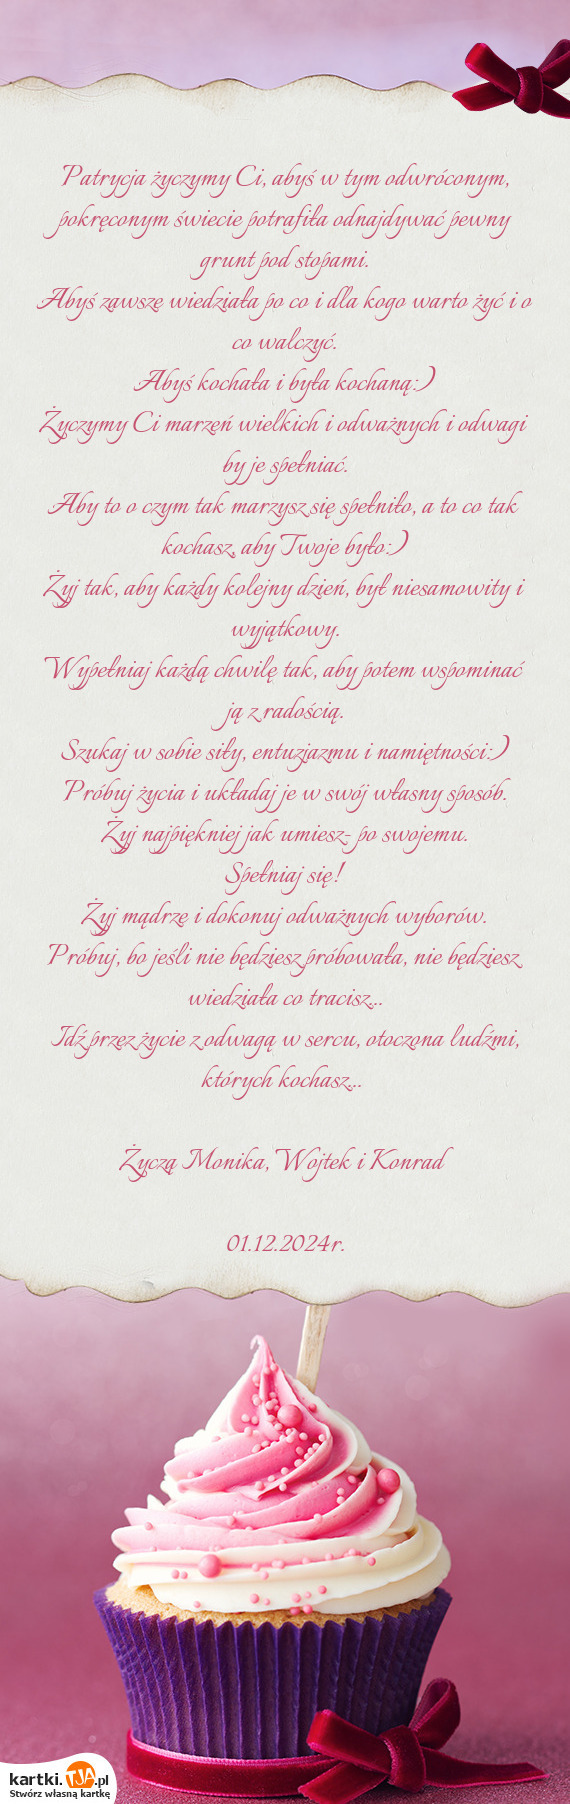 Patrycja życzymy Ci, abyś w tym odwróconym,
pokręconym świecie potrafiła odnajdywać pewny
grunt pod stopami.
Abyś zawsze wiedziała po co i dla kogo warto żyć i o
co walczyć.
Abyś kochała i była kochaną:)
Życzymy Ci marzeń wielkich i odważnych i odwagi
by je spełniać.
Aby to o czym tak marzysz się spełniło, a to co tak
kochasz, aby Twoje było:)
Żyj tak, aby każdy kolejny dzień, był niesamowity i
wyjątkowy.
Wypełniaj każdą chwilę tak, aby potem wspominać
ją z radością.
Szukaj w sobie siły, entuzjazmu i namiętności:)
Próbuj życia i układaj je w swój własny sposób.
Żyj najpiękniej jak umiesz- po swojemu.
Spełniaj się!
Żyj mądrze i dokonuj odważnych wyborów.
Próbuj, bo jeśli nie będziesz próbowała, nie będziesz
wiedziała co tracisz...
Idź przez życie z odwagą w sercu, otoczona ludźmi,
których kochasz...
Życzą Monika, Wojtek i Konrad
01.12.2024r.
kartki.TJA.pl
Stwórz własną kartkę